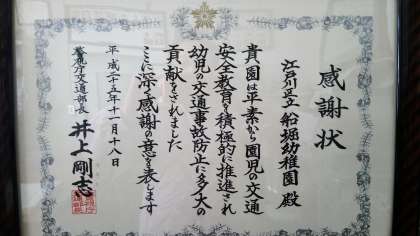 感謝状
江戸川区立 船堀幼稚園 殿
貴園は平素から園児の交通
安全教育を積極的に推進され
幼児の交通事故防止に多大の
貢献をされました
ここに深く感謝の意を表します
平成二十五年十一月十八日
警視庁交通部長 井上剛志